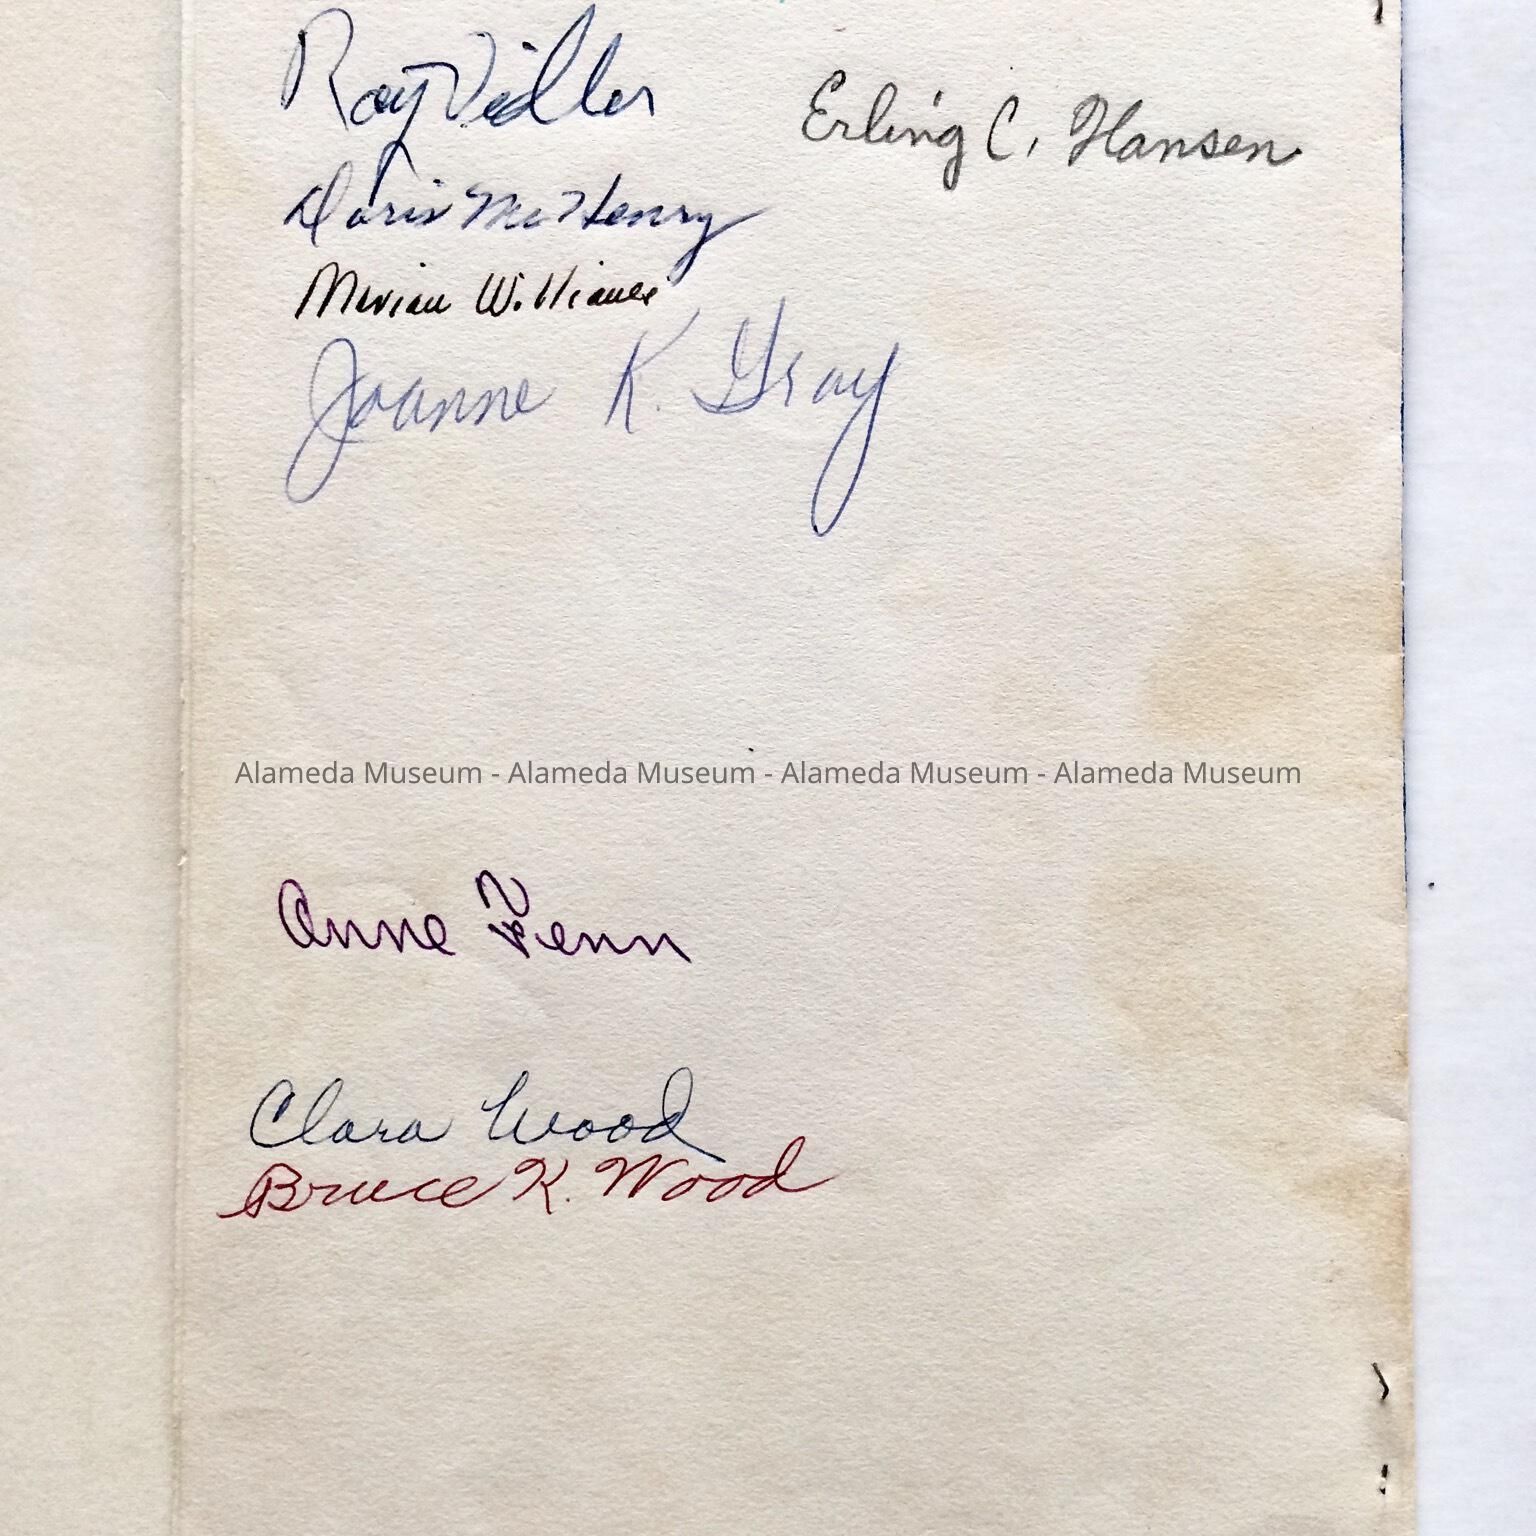 Ray Vidler
Erling C. Hansen
Doris McHenry
Marian Williams
Joanne K. Gray
Alameda Museum - Alameda Museum - Alameda Museum - Alameda Museum
Anne Fenn
Clara Wood
Bruce K. Wood